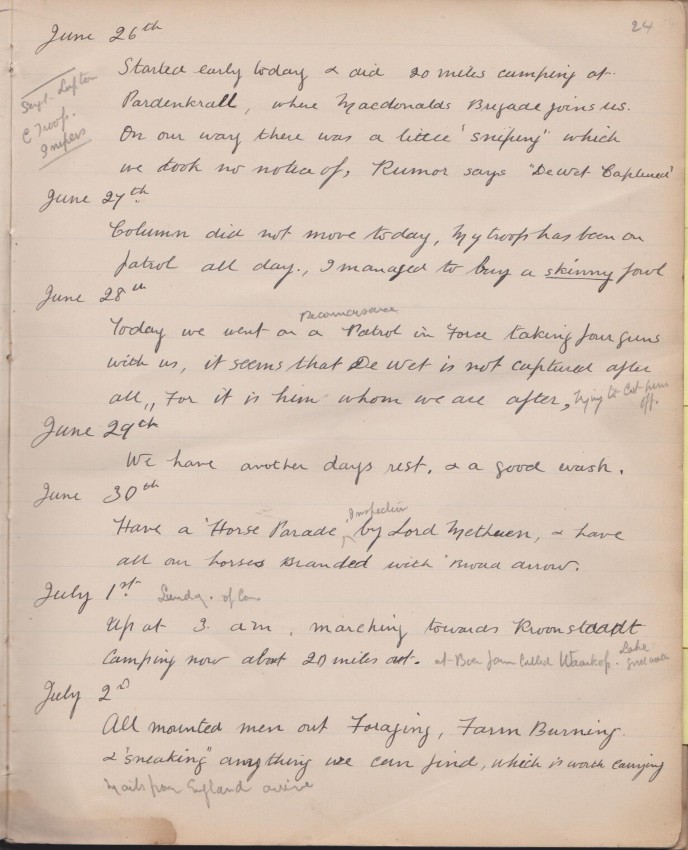 24
June 26th
Started early today & did 20 miles camping at
Pardenkrall, where Macdonalds Brigade joins us.
Sergt. Lupton
C Troop.
Snipers
On our way there was a little 'sniping" which
we took no notice of, Rumor says "De wet Captured"
June 27th
Column did not move today, My troop has been on
patrol all day., I managed to buy a skinny fowl
June 28th
Reconnaisance
Today we went on a Patrol in Force taking four guns
with us, it seems that De Wet is not captured after
all,, For it is him whom we are after, trying to cut him
off.
June 29th
We have another days rest, & a good wash.
June 30th
Inspection
Have a 'Horse Parade by Lord Methuen, & have
all our horses Branded with Broad arrow.
July 1st Sunday. of Con
Up at 3. am, marching towards Kroonstaadt
Camping now about 20 miles out. at Boer farm called
Lake
July 2nd
All mounted men out Foraging, Farm Burning
& "sneaking" anything we can find, which is worth carrying
Mails from England arrive